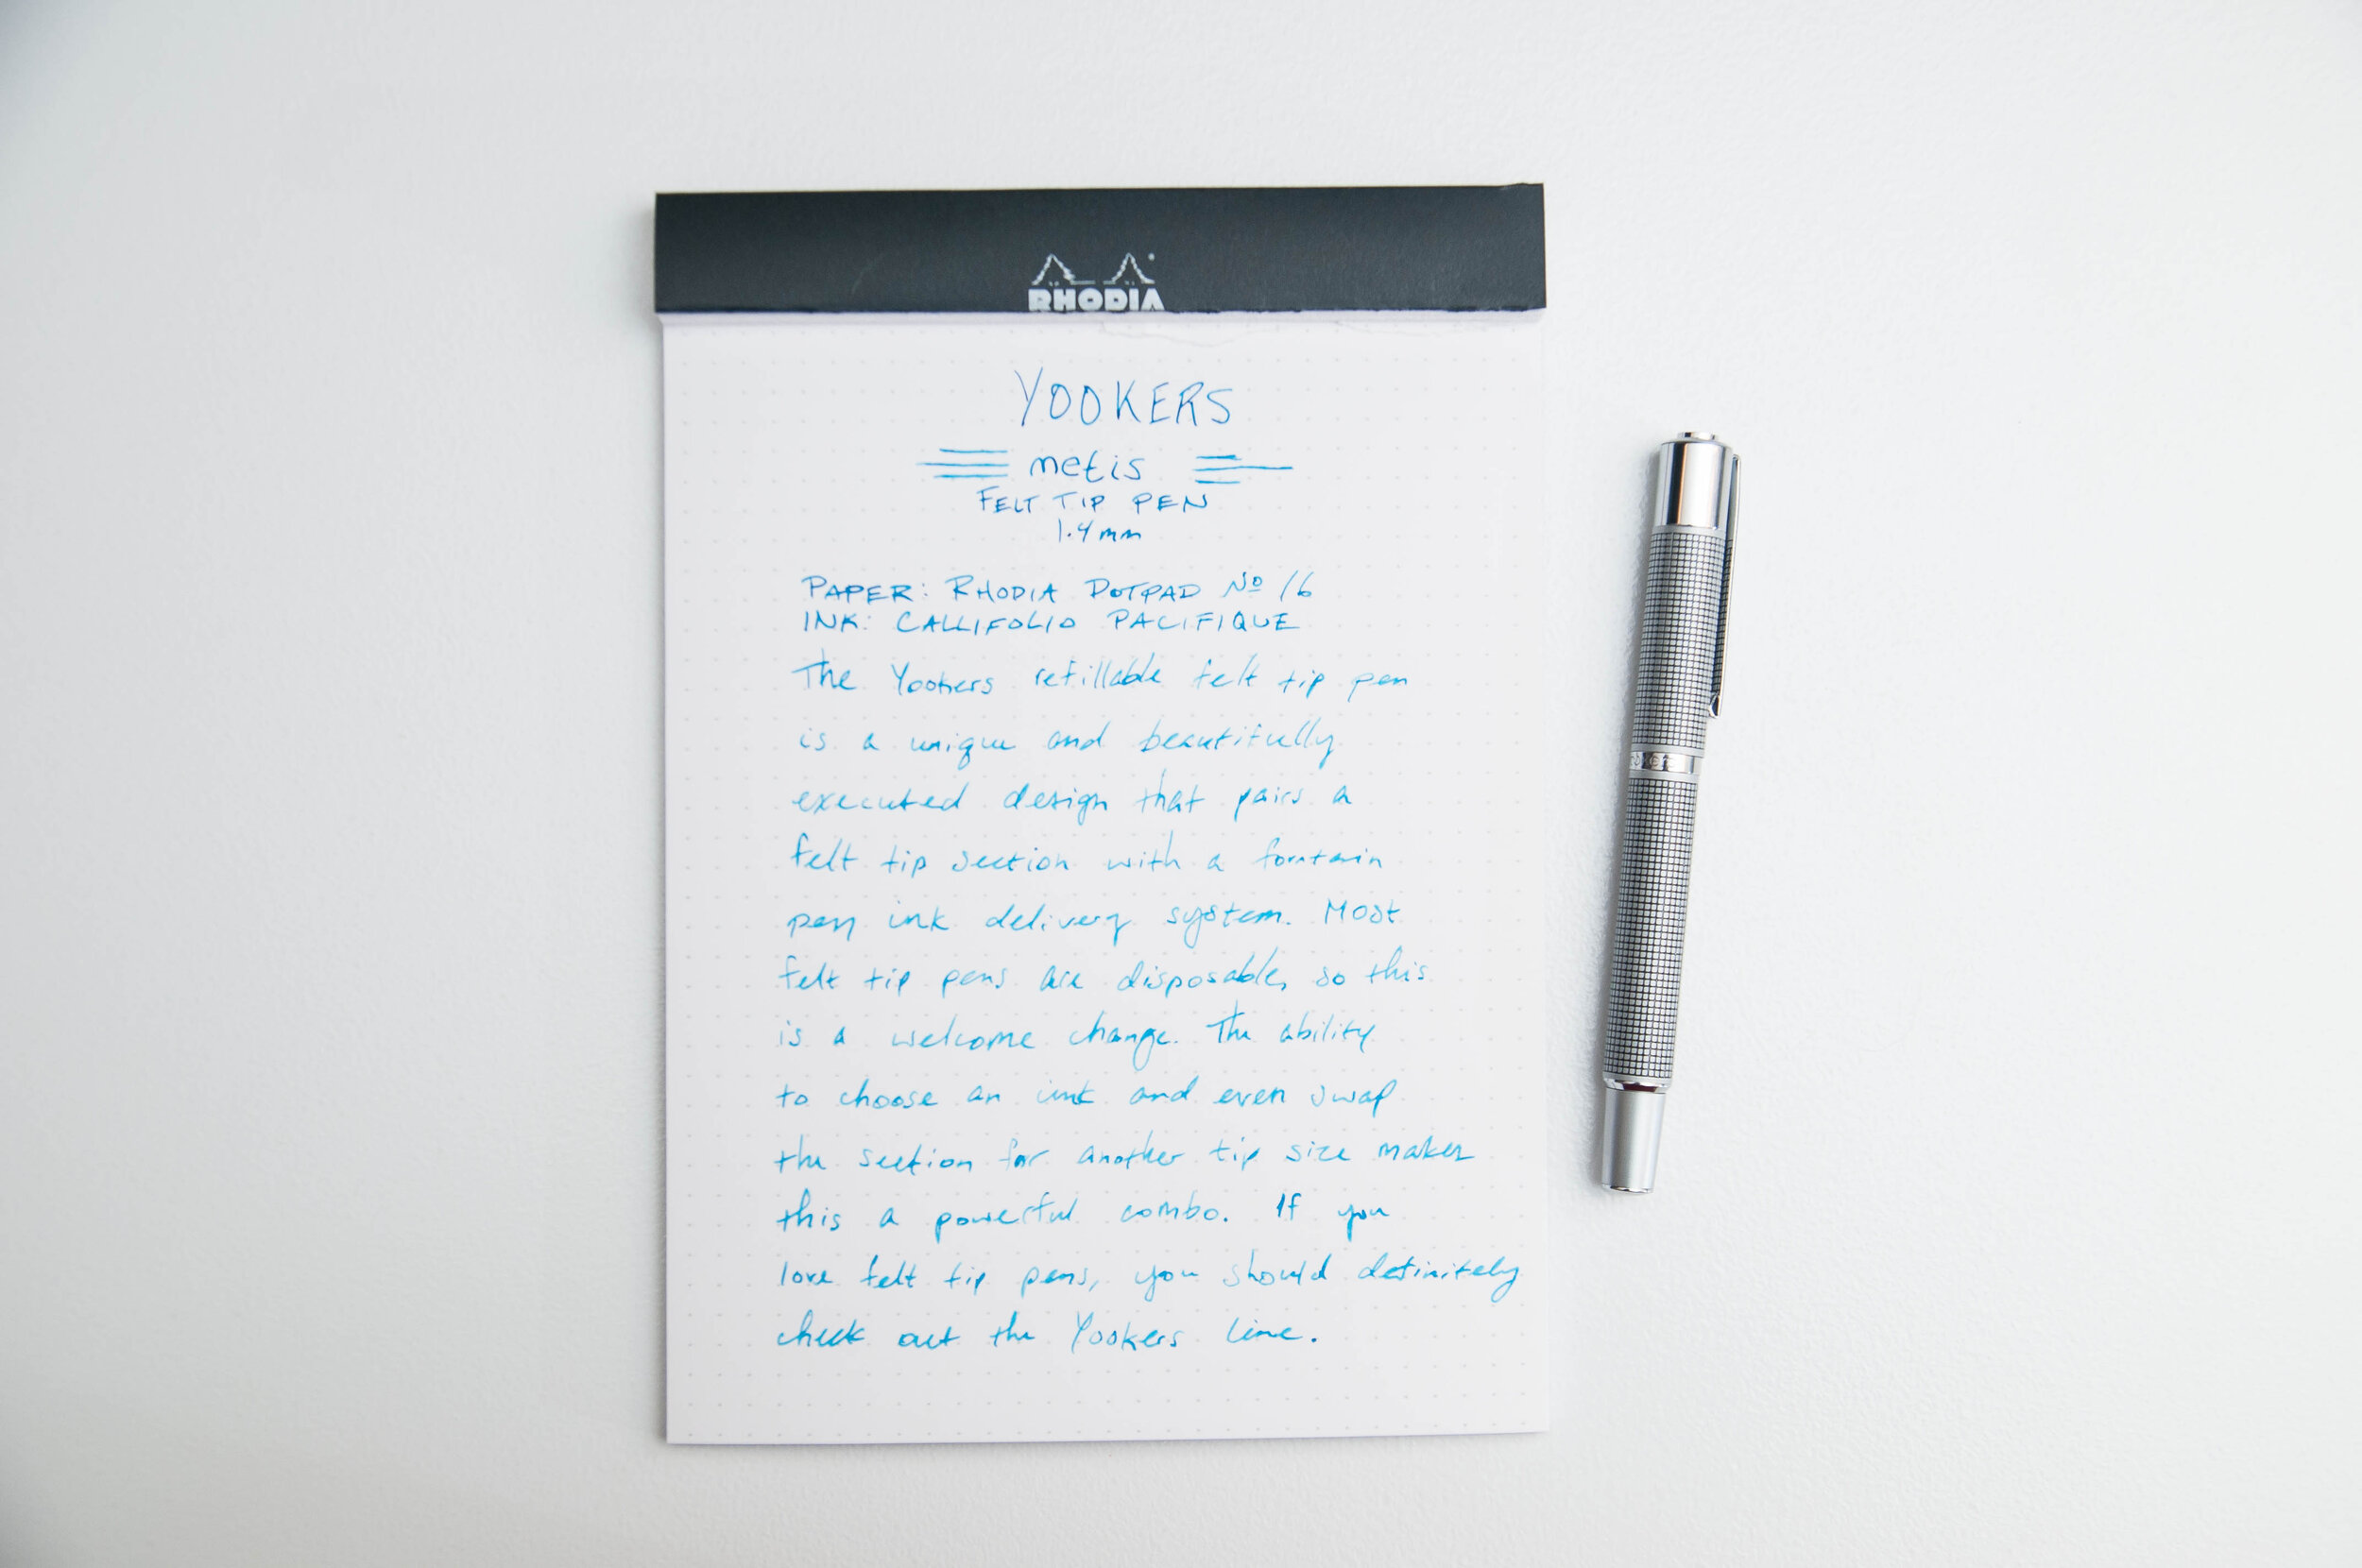 RHODIA
YOOKERS
metis
FELT TIP PEN
1.4mm
PAPER: RHODIA DOTPAD Nº 16
INK: CALLIFOLIO PACIFIQUE
The Yookers refillable felt tip pen
is a unique and beautifully
executed design that pairs a
felt tip section with a fountain
pen ink delivery system. Most
felt tip pens are disposable, so this
is a welcome change. The ability
to choose an ink and even swap
the section for another tip size makes
this a powerful combo. If you
love felt tip pens, you should definitely
check out the Yookers line.